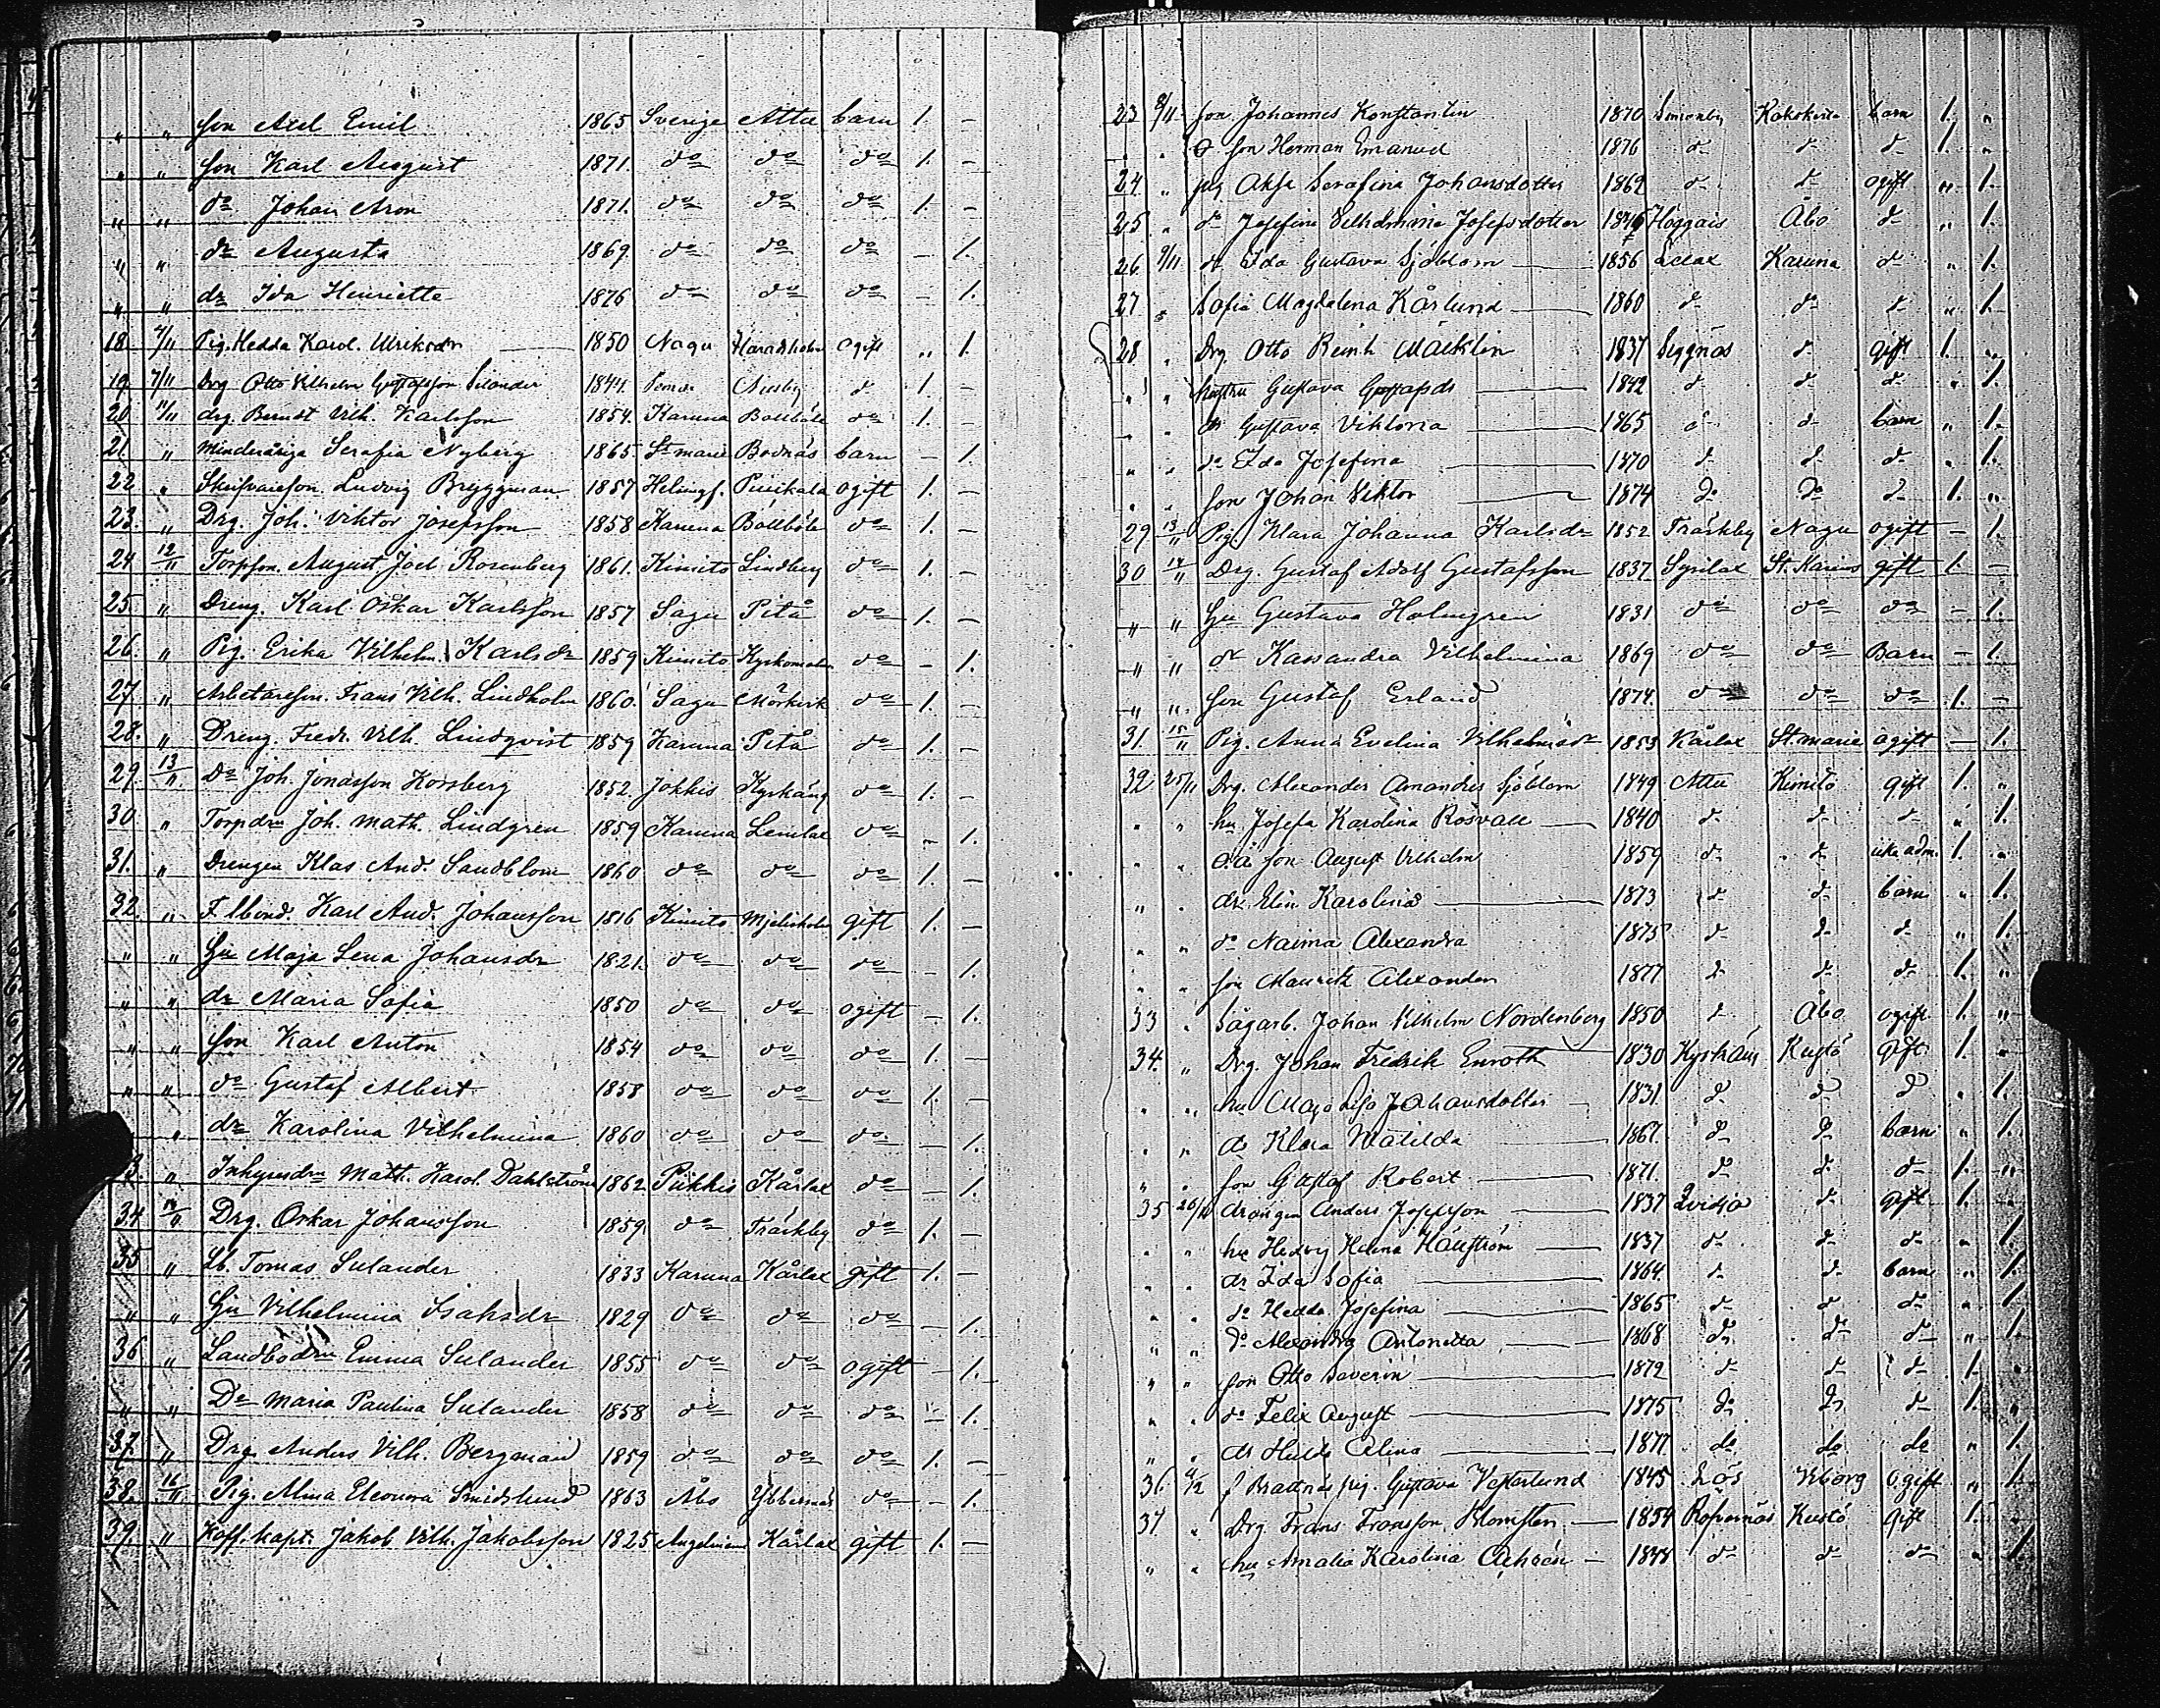 " " son Axel Emil 1865 Sverige Attu barn 1. -
" " son Karl August 1871. do do do 1. -
" " do Johan Aron 1871. do do do 1. -
" " dr Augusta 1869. do do do - 1.
" " dr Ida Henriette 1876 do do do - 1.
18. 4/11 Pig. Hedda Karol. Ulriksdr 1850 Nagu Haradholm ogift " 1.
19. 7/11 Drg Otto Vilhelm Gustafsson Selander 1844. d 1. -
20 11/11 drg. Berndt Vilh. Karlsson 1854. Karuna Bollböle do 1. -
21. " Minderåriga Serafia Nyberg 1865. St marie Bodnäs barn - 1.
22. " Ludvig Bryggman 1857 Helsingf. ogift 1. -
23. " Drg. Joh. Viktor Josefsson 1858 Karuna Bollböle do 1. -
24 12/11 Torpson. August Joel Rosenberg 1861. Kimito Lindberg do 1. -
25. " Dreng. Karl Oskar Karlsson 1857 Sagu Pitå do 1. -
26. " Pig. Erika Vilhelm. Karlsdr 1859 Kimito do - 1.
27. " Arbetaresson. Frans Vilh. Lindholm 1860. Sagu Mörkirk do 1. -
28. " Dreng. Fredr. Vilh. Lindqvist 1859 Karuna Pitå do 1. -
29. 13/11. Do Joh. Jonasson Korsberg 1852. Jokkis Kyrkäng do 1. -
30 " Torpdrn Joh. Math. Lindgren 1859 Karuna Lemlax do - 1.
31. " Drengen Klas And. Sandblom 1860 do do do 1. -
32. " F. lbond. Karl And. Johansson 1816 Kimito Mjelisholm gift 1. -
" " Hu Maja Lena Johansdr 1821. do do do - 1.
" " dr Maria Sofia 1850 do do ogift - 1.
" " son Karl Anton 1854 do do do 1. -
" " do Gustaf Albert 1858 do do do 1. -
" dr Karolina Vilhelmina 1860 do do do - 1.
3. " Inhysesdrn Math. Karol. Dahlström 1862. Piikkis Kårlax do - 1.
34 14/11 Drg. Oskar Johansson 1859. do Träskby do 1. -
35 " Lb. Tomas Sulander 1833 Karuna Kårlax gift 1. -
" " Hu Vilhelmina Isaksdr 1829 do do do - 1.
36 " Landbodrn Emma Sulander 1855 do do ogift - 1.
" " Do Maria Paulina Sulander 1858 do do do - 1.
37. " Drg. Anders Vilh. Bergman 1859 do do do 1. -
38. 16/11 Pig. Alma Eleonora Smidslund 1863 Åbo Ybbersnäs do - 1.
39. " Koff. kapt. Jakob Vilh. Jakobsson 1825 Kårlax gift 1. -
23 8/11 son Johannes Konstantin 1870 Simonby Kakskerta barn 1. "
" " son Herman Emanuel 1876 d d d 1. "
24. " pig Serafina Johansdotter 1862 d d ogift " 1.
25 " do Josefina Vilhelmina Josefsdotter Haggais Åbo d " 1.
26. 9/11 do Ida Gustava Sjöblom 1856 Karuna d " 1.
27 " Sofia Magdalena Kårlund 1860 d do d " 1.
28 " Drg Otto Reinh Mäcklin 1837 Seggnäs d gift 1. "
" " hustru Gustava Gustafsdr 1842 d d d " 1.
" " dr Gustava Viktoria 1865 d d barn " 1.
" " do Ida Josefina 1870 d d d " 1.
" " son Johan Viktor 1874 do do d 1. "
29 13/11 Pig. Klara Johanna Karlsdr 1852 Träskby Nagu ogift - 1.
30 14/11 Drg. Gustaf Adolf Gustafsson 1837. Syrilax St. Karins gift 1. -
" " Hu Gustava Holmgren 1831 do do do - 1.
" " dr Kassandra Vilhelmina 1869 do do Barn - 1.
" " son Gustaf Erland 1874. do do do 1. -
31. 15/11 Pig. Anna Evelina Vilhelmsdr 1853 Kårlax St. marie ogift - 1.
32. 25/11 Drg. Alexander Amandus Sjöblom 1849 Attu Kimito gift 1. "
" " hu Josefa Karolina Rosvall 1840 d d d " 1.
" " o.ä son August Vilhelm 1859 d d icke adm. 1. "
" " dr Elin Karolina 1873 d d barn " 1.
" " do Naima Alexandra 1875 d d d " 1.
" " son Mauritz Alexander 1877 d d d 1. "
33 " Sågarb. Johan Vilhelm Nordenberg 1850 d Åbo ogift 1. "
34. " Drg. Johan Fredrik Enroth 1830 Kustö gift 1. "
" " hu Maja Lisa Johansdotter 1831. d d d " 1.
" " dr Klara Matilda 1867. d d barn " 1.
" " son Gustaf Robert 1871. do d d 1. "
35 26/11 drängen Anders 1837 Qvidja d gift 1. "
" " hu Hedvig Helena 1837 d d d " 1.
" " dr Ida Sofia 1864. d d barn " 1.
" " do Hedda Josefina 1865 d d d " 1.
" " do Alexandra Antonetta 1868 do d d " 1.
" " son Otto Severin 1872 d d d 1. "
" " do Felix August 1875 do d d 1. "
" " dr Hulda Alina 1877 do do do " 1.
36 pig. Gustava Vesterlund 1845 Lös Viborg ogift " 1.
37 " Drg Frans Fransson Blomsten 1854 Kustö gift 1. "
" " hu Amalia Karolina 1848 d d d " 1.